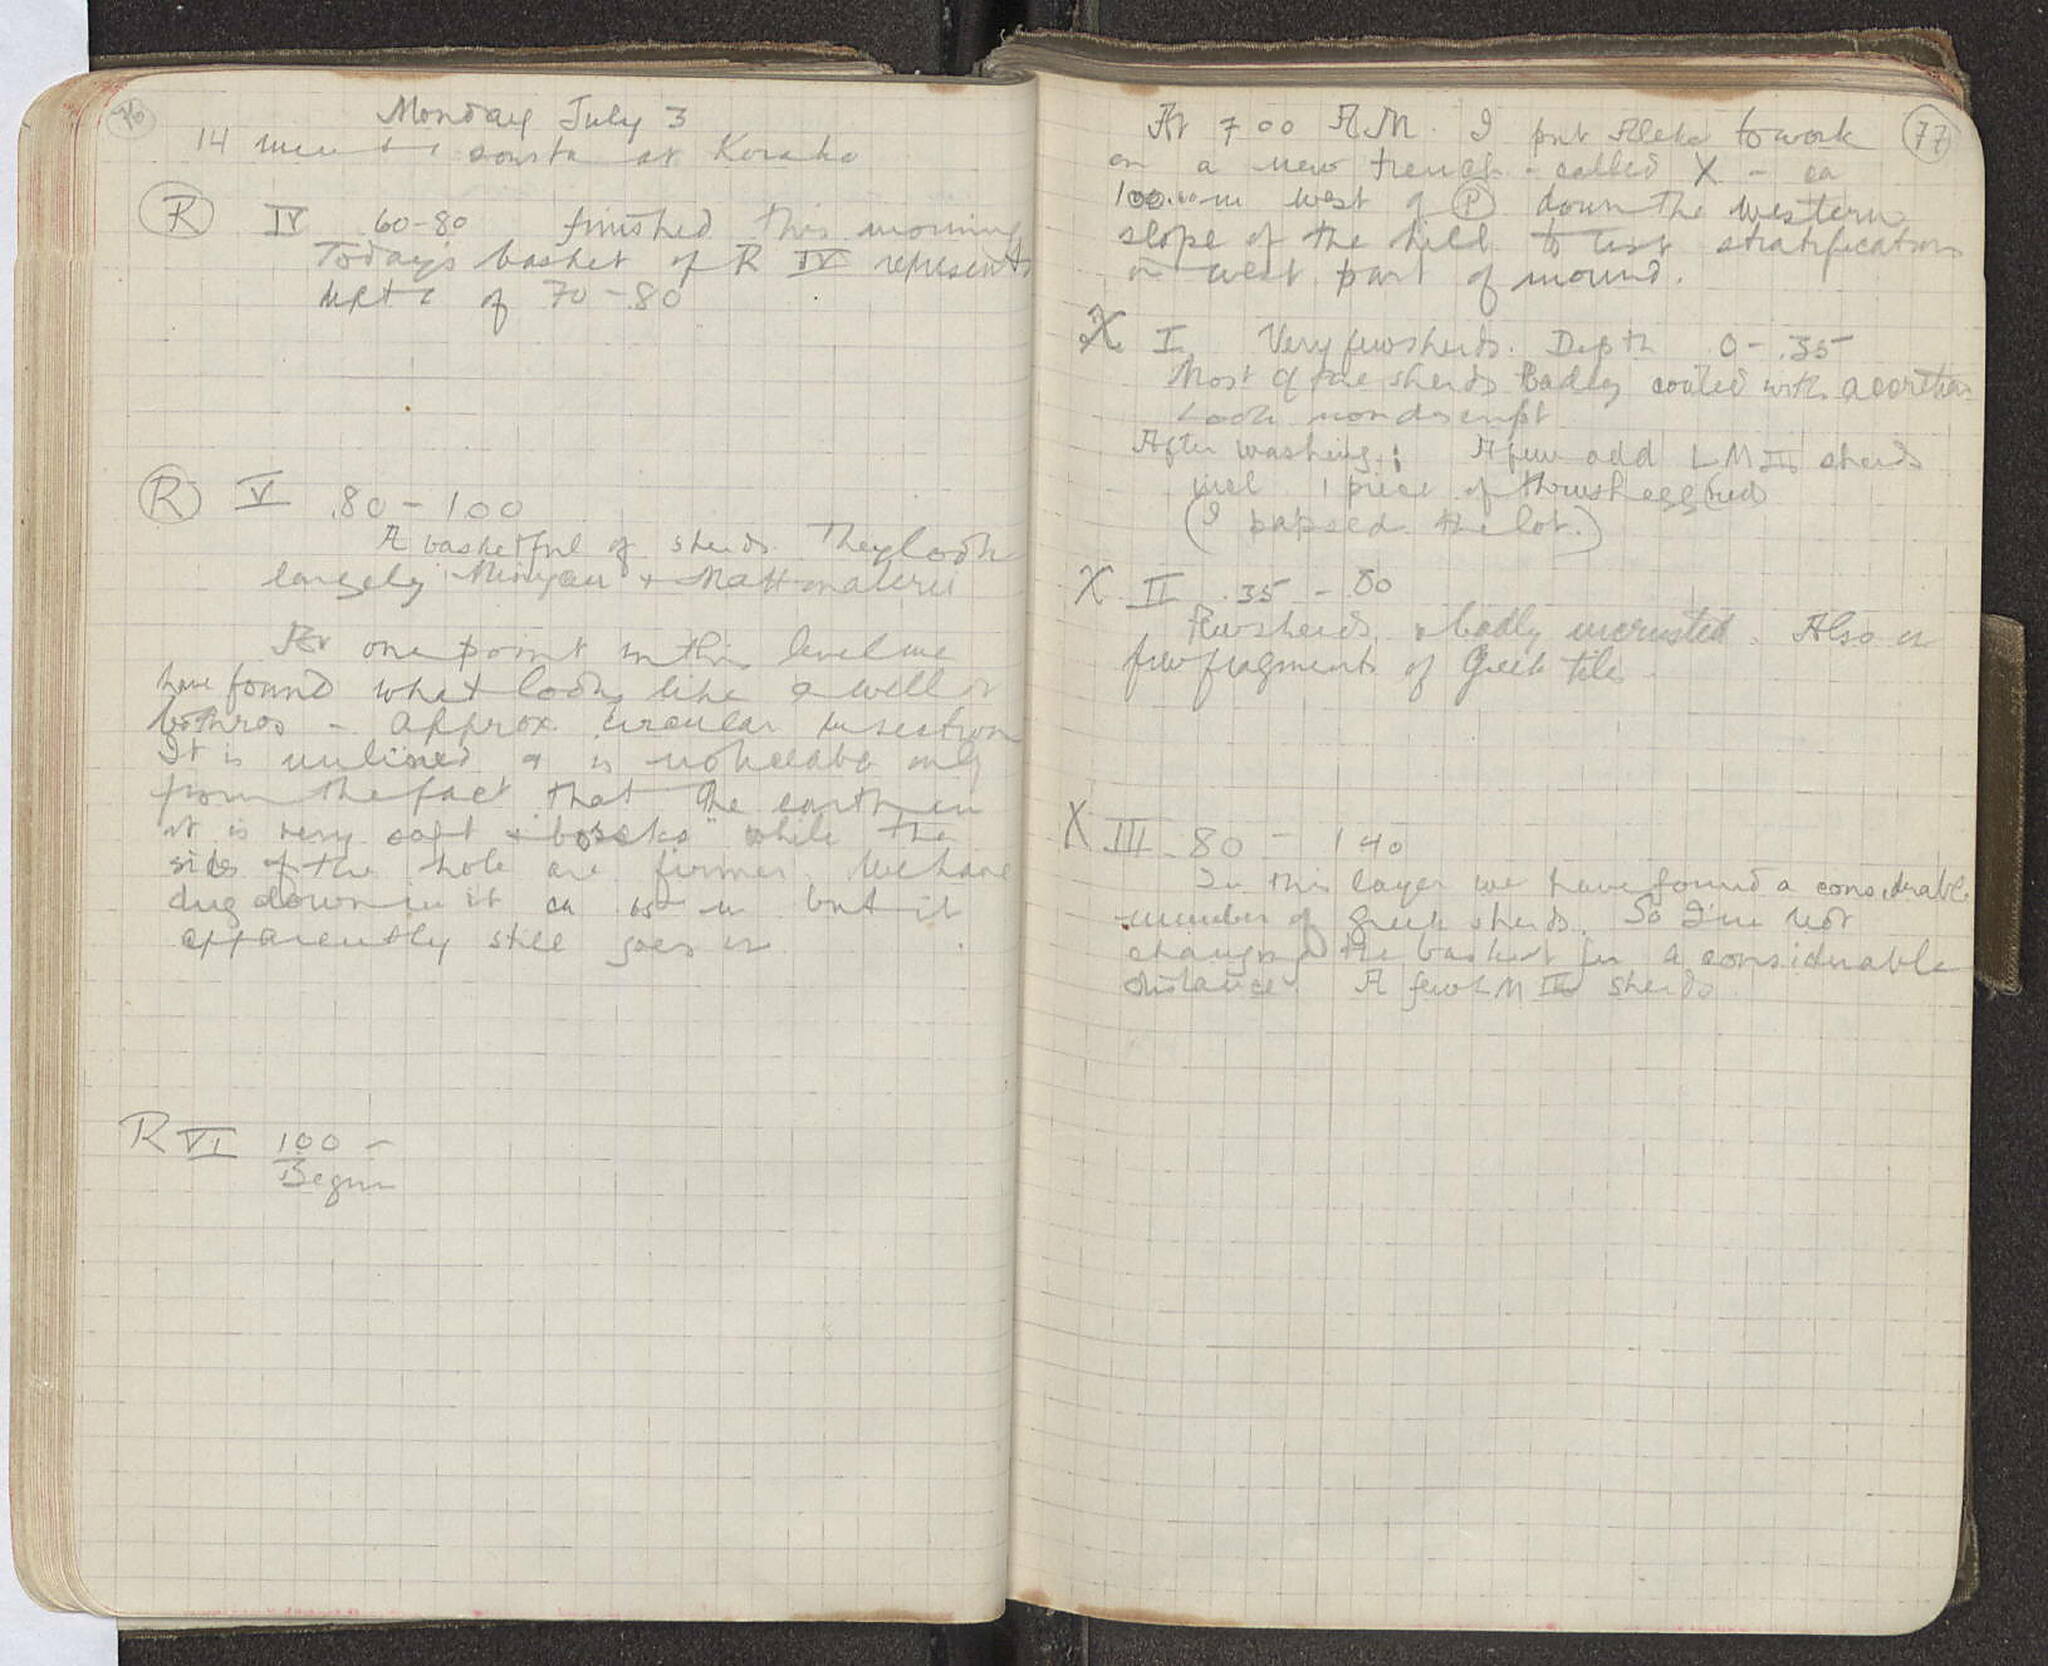 76
Monday July 3
14 men + sousta at Korako
R IV .60-80 finished this morning
Today's basket of R IV represents
depth of 70-80
R V .80-100
A basketful of sherds. They look
largely Minyan + Mattmalerei
At one point in this level we
have found what looks like a well or
bothros - approx. circular in section
It is unlined + is noticeable only
from the fact that the earth in
it is very soft + "bosko" while the
sides of the hole are firmer. We have
dug down in it ca m but it
apparently still goes on
R VI 100 -
Begun
77
At 7 00 A.M. I put Aleko to work
on a new trench - called X - ca
100.00 m west of P down the western
slope of the hill to test stratification
in west part of mound.
X I Very few sherds. Depth 0-.35
Most of the sherds badly coated with accretion
Look nondescript
After washing: A few odd LM III sherds
incl 1 piece of thrush egg
(I papsed the lot.)
X II .35 - 80
Few sherds + badly incrusted. Also a
few fragments of Greek tiles
X III 80 - 140
In this layer we have found a considerable
number of Greek sherds. So I've not
changed the basket for a considerable
distance. A few LM III sherds